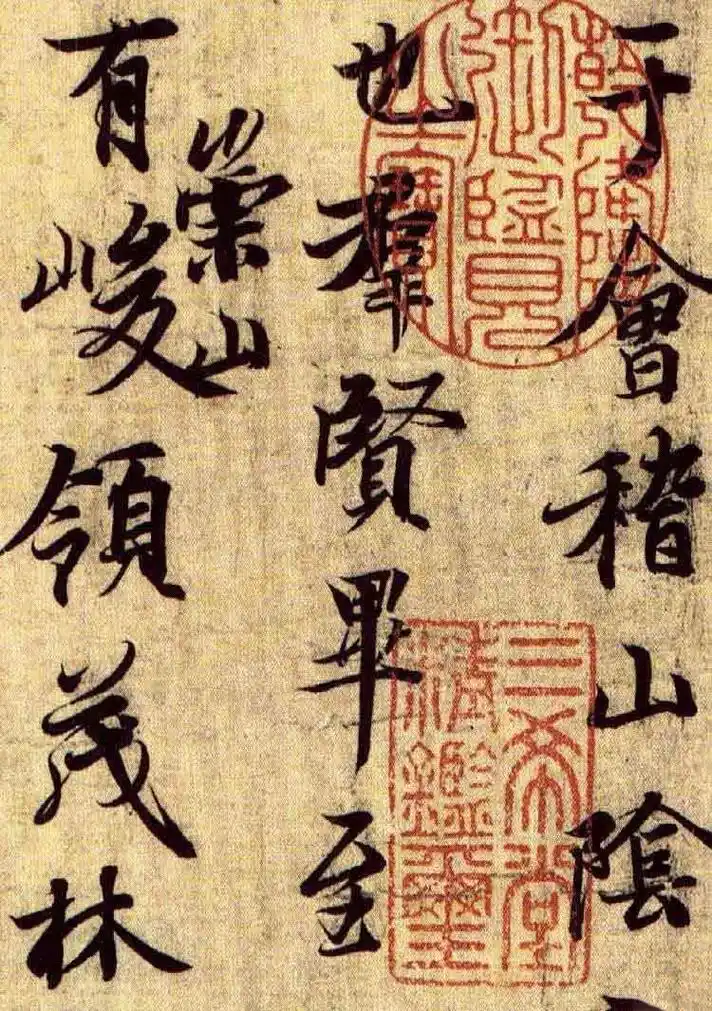 于會稽山陰
也羣賢畢至
有崇山峻領茂林
乾隆御覽之寶
三希堂精鑑璽